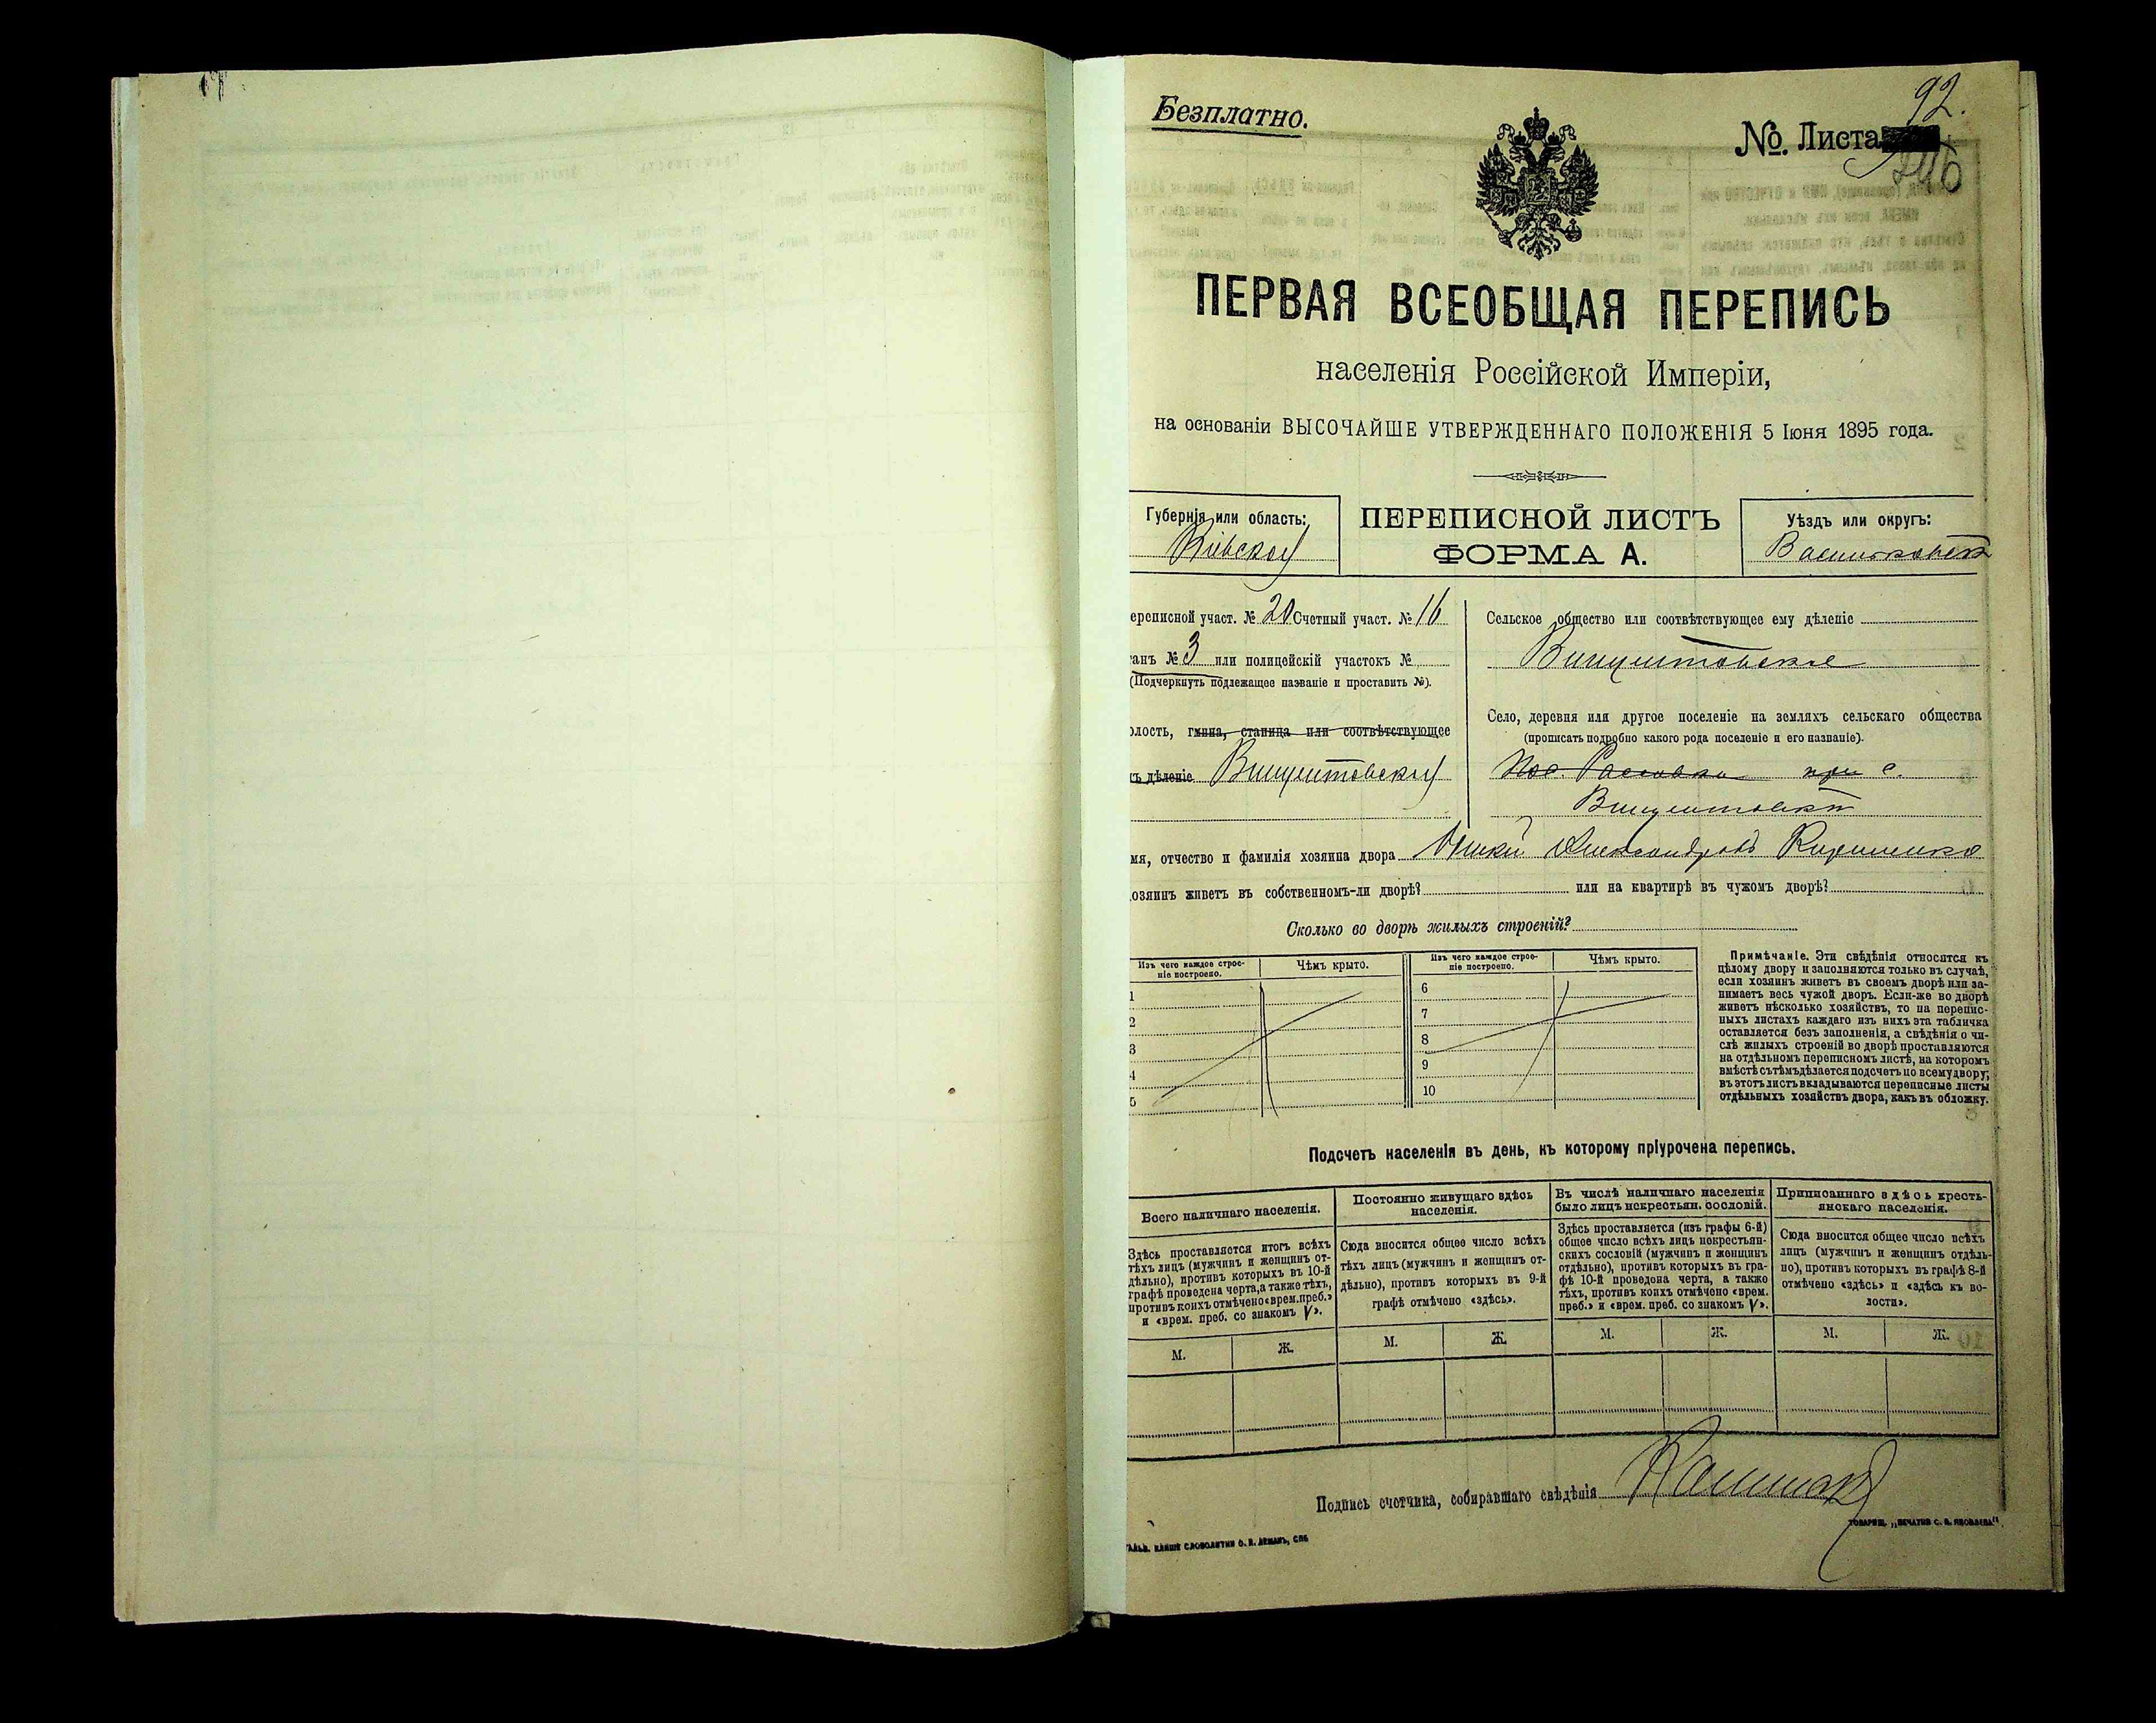 92.
Безплатно.
№ Листа
246
ПЕРВАЯ ВСЕОБЩАЯ ПЕРЕПИСЬ
населенія Россійской Имперіи,
на основаніи ВЫСОЧАЙШЕ УТВЕРЖДЕННАГО ПОЛОЖЕНІЯ 5 Іюня 1895 года.
Губернія или область:
Кіевская
ПЕРЕПИСНОЙ ЛИСТЪ
ФОРМА А.
Уѣздъ или округъ:
Васильковскій
ереписной участ. № 20 Счетный участ. № 16
танъ № 3 или полицейскій участокъ №
(Подчеркнуть подлежащее названіе и проставить №).
олость, гмина, станица или соотвѣтствующее
ъ дѣленіе Винцентовская
Сельское общество или соотвѣтствующее ему дѣленіе
Винцентовское
Село, деревня или другое поселеніе на земляхъ сельскаго общества
(прописать подробно какого рода поселеніе и его названіе).
при с.
Винцентовкѣ
мя, отчество и фамилія хозяина двора Александровъ Кириленко
озяинъ живетъ въ собственномъ-ли дворѣ? или на квартирѣ въ чужомъ дворѣ?
Сколько во дворѣ жилыхъ строеній?
Изъ чего каждое строе-
ніе построено.
Чѣмъ крыто.
1
2
3
4
5
Изъ чего каждое строе-
ніе построено.
Чѣмъ крыто.
6
7
8
9
10
Примѣчаніе. Эти свѣдѣнія относятся къ
цѣлому двору и заполняются только въ случаѣ,
если хозяинъ живетъ въ своемъ дворѣ или за-
нимаетъ весь чужой дворъ. Если-же во дворѣ
живетъ нѣсколько хозяйствъ, то на перепис-
ныхъ листахъ каждаго изъ нихъ эта табличка
оставляется безъ заполненія, а свѣдѣнія о чи-
слѣ жилыхъ строеній во дворѣ проставляются
на отдѣльномъ переписномъ листѣ, на которомъ
вмѣстѣ съ тѣмъ дѣлается подсчетъ по всему двору;
въ этотъ листъ вкладываются переписные листы
отдѣльныхъ хозяйствъ двора, какъ въ обложку.
Подсчетъ населенія въ день, къ которому пріурочена перепись.
Всего наличнаго населенія.
Здѣсь проставляется итогъ всѣхъ
тѣхъ лицъ (мужчинъ и женщинъ от-
дѣльно), противъ которыхъ въ 10-й
графѣ проведена черта, а также тѣхъ,
противъ коихъ отмѣчено «врем. преб.»
и «врем. преб. со знакомъ V».
М. Ж.
Постоянно живущаго здѣсь
населенія.
Сюда вносится общее число всѣхъ
тѣхъ лицъ (мужчинъ и женщинъ от-
дѣльно), противъ которыхъ въ 9-й
графѣ отмѣчено «здѣсь».
М. Ж.
Въ числѣ наличнаго населенія
было лицъ некрестьян. сословій.
Здѣсь проставляется (изъ графы 6-й)
общее число всѣхъ лицъ некрестьян-
скихъ сословій (мужчинъ и женщинъ
отдѣльно), противъ которыхъ въ гра-
фѣ 10-й проведена черта, а также
тѣхъ, противъ коихъ отмѣчено «врем.
преб.» и «врем. преб. со знакомъ V».
М. Ж.
Приписаннаго здѣсь кресть-
янскаго населенія.
Сюда вносится общее число всѣхъ
лицъ (мужчинъ и женщинъ отдѣль-
но), противъ которыхъ въ графѣ 8-й
отмѣчено «здѣсь» и «здѣсь къ во-
лости».
М. Ж.
Подпись счетчика, собиравшаго свѣдѣнія
ТОВАРИЩ. „ПЕЧАТНЯ С. П. ЯКОВЛЕВА“.
СЛОВОЛИТНИ О. И. ЛЕМАНЪ, СПБ